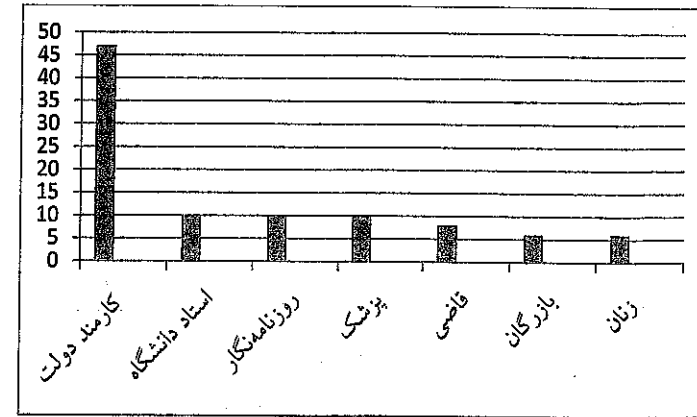 50
45
40
35
30
25
20
15
10
5
0
کارمند دولت
استاد دانشگاه
روزنامه‌نگار
پزشک
قاضی
بازرگان
زنان